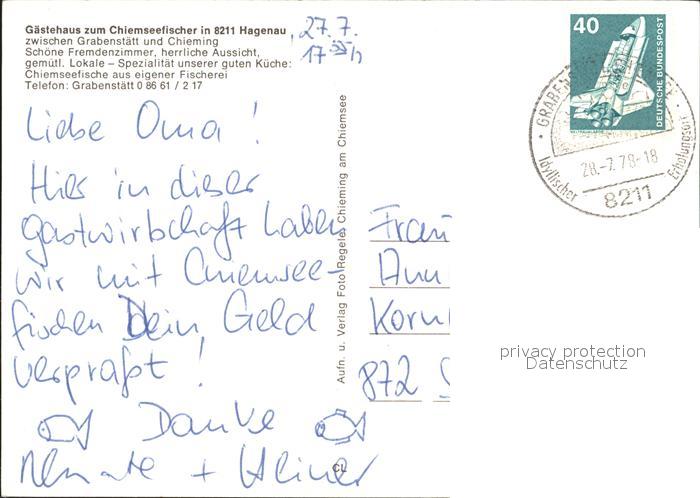 Gästehaus zum Chiemseefischer in 8211 Hagenau,
zwischen Grabenstätt und Chieming
Schöne Fremdenzimmer, herrliche Aussicht,
gemütl. Lokale – Spezialität unserer guten Küche:
Chiemseefische aus eigener Fischerei
Telefon: Grabenstätt 0 86 61 / 2 17
27.7.
17 55 h
Liebe Oma!
Hier in dieser
Gastwirtschaft haben
wir mit Chiemsee-
fischen Dein Geld
verpraßt!
Danke
Renate + Heiner
CL
Aufn. u. Verlag Foto Regele, Chieming am Chiemsee
Frau
Ann
Korn
872
40
DEUTSCHE BUNDESPOST
28.-7.78-18
Idyllischer Erholungsort
8211
privacy protection
Datenschutz